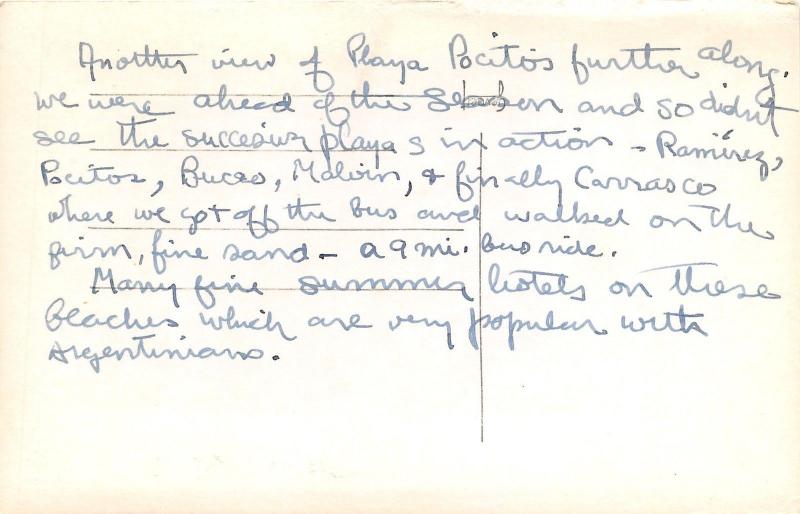 Another view of Playa Pocitos further along.
We were ahead of the season and so didn't
see the successive playas in action - Ramirez,
Pocitos, Buceo, Malvin, & finally Carrasco
where we got off the bus and walked on the
firm, fine sand - a 9 mi. bus ride.
Many fine summer hotels on these
beaches which are very popular with
Argentinians.